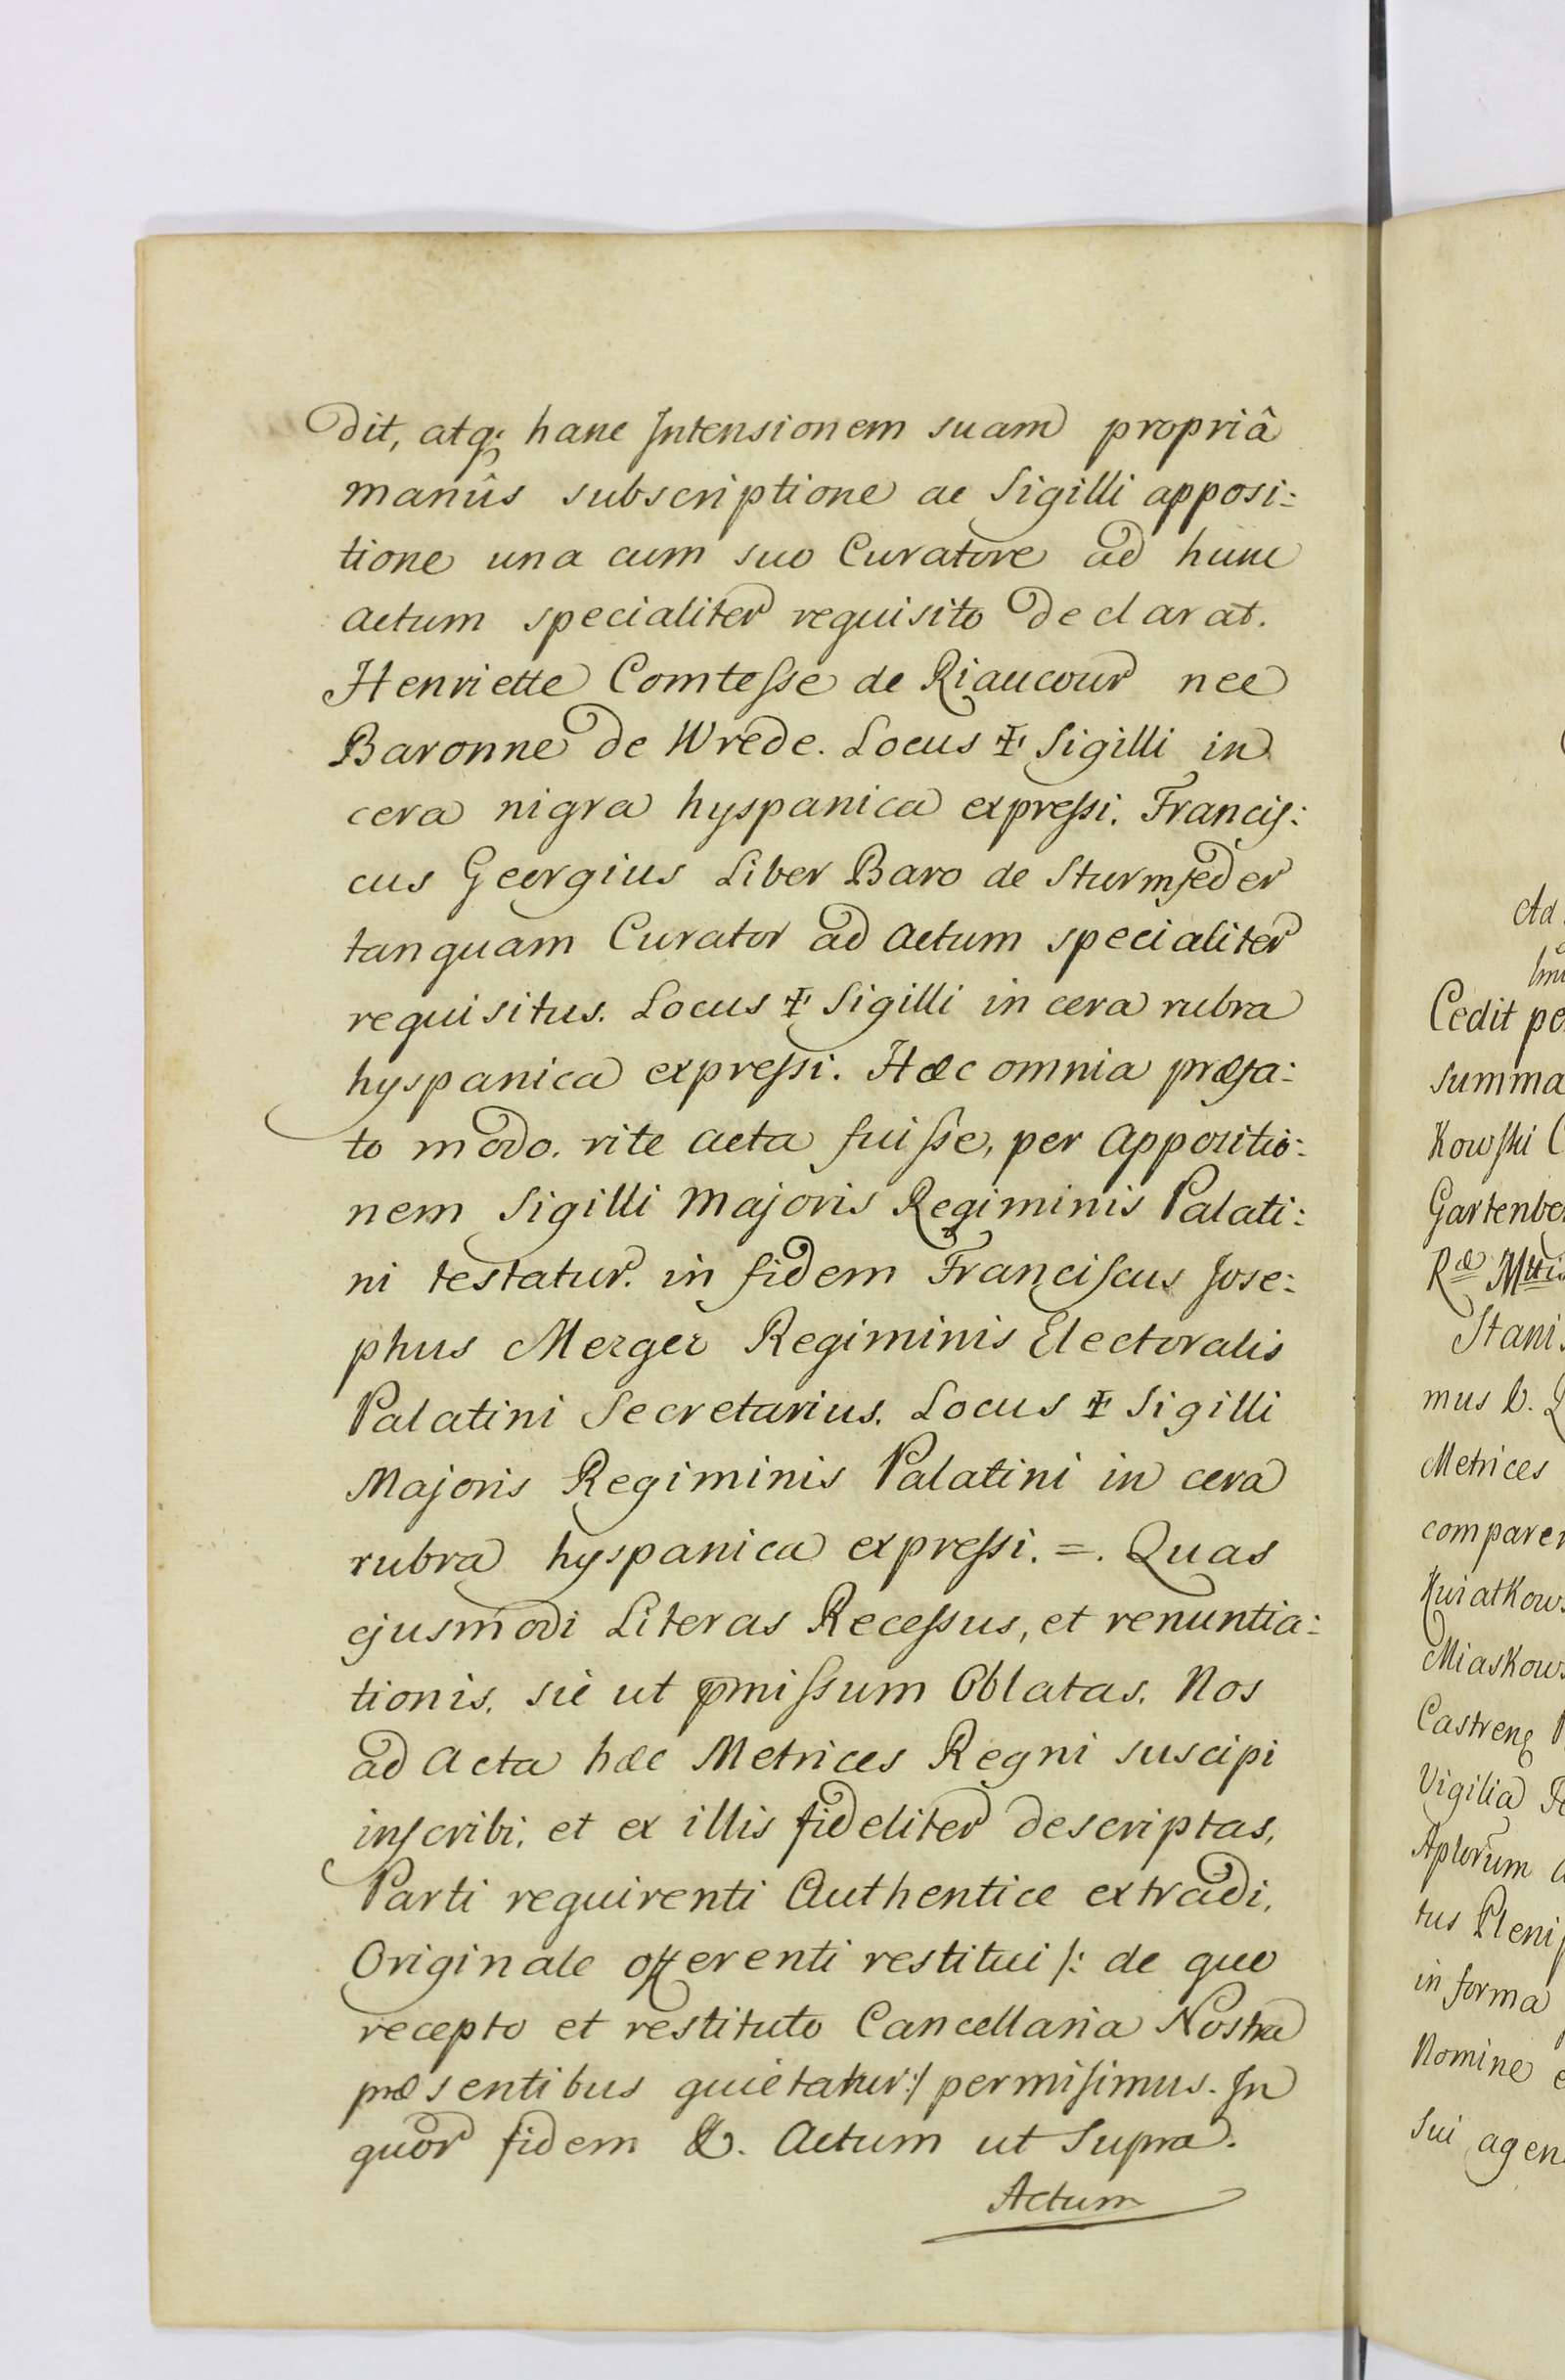 dit, atq; hanc Intensionem suam propriâ
manûs subscriptione ac Sigilli apposi:
tione una cum suo Curatore ad hunc
actum specialiter requisito declarat.
Henriette Comtesse de Riaucour nee
Baronne de Wrede. Locus ✠ Sigilli in
cera nigra hyspanica expressi. Francis:
cus Georgius Liber Baro de Sturmfeder
tanquam Curator ad actum specialiter
requisitus. Locus ✠ Sigilli in cera rubra
hyspanica expressi. Hæc omnia præfa:
to modo. rite acta fuisse, per appositio:
nem Sigilli Majoris Regiminis Palati:
ni testatur. in fidem Franciscus Jose:
phus Merger Regiminis Electoralis
Palatini Secretarius. Locus ✠ Sigilli
Majoris Regiminis Palatini in cera
rubra hyspanica expressi. =. Quas
ejusmodi Literas Recessus, et renuntia:
tionis. sic ut pmissum Oblatas. Nos
ad Acta hæc Metrices Regni suscipi
inscribi, et ex illis fideliter descriptas,
Parti requirenti Authentice extradi,
Originale offerenti restitui /: de quo
recepto et restituto Cancellaria Nostra
præsentibus quietatur :/ permisimus. In
quor fidem &. Actum ut Supra.
Actum
Ad
Cedit pe
summa
Kowski
Gartenbe
Ræ Mtti
Stani
mus D.
Metrices
comparen
Kwiatkows
Miaskows
Castren
Vigilia
Aplorum
tus Plenip
in forma
Nomine
Sui agen